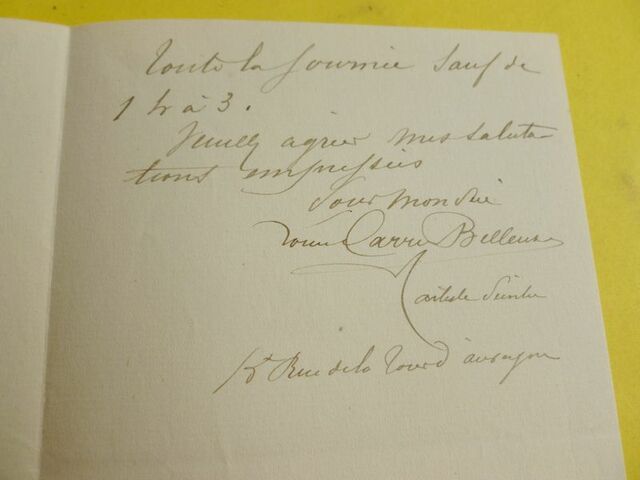 toute la journée sauf de
1 h à 3.
Veuillez agréer mes saluta-
tions empressées
pour mon
Carrier Belleuse
artiste Peintre
15 Rue de la Tour d'auvergne